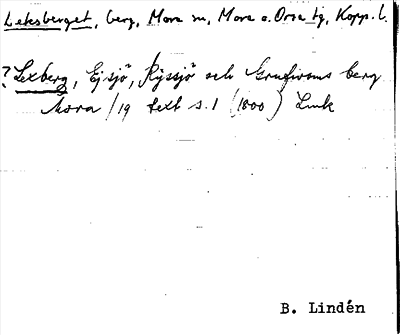 Leksberget, berg, Mora sn, Mora o. Orsa tg, Kopp. l.
? Lexberg, Ejsjö, Ryssjö och Grufvens berg
Mora /19 text s. 1 (1800) Link
B. Lindén